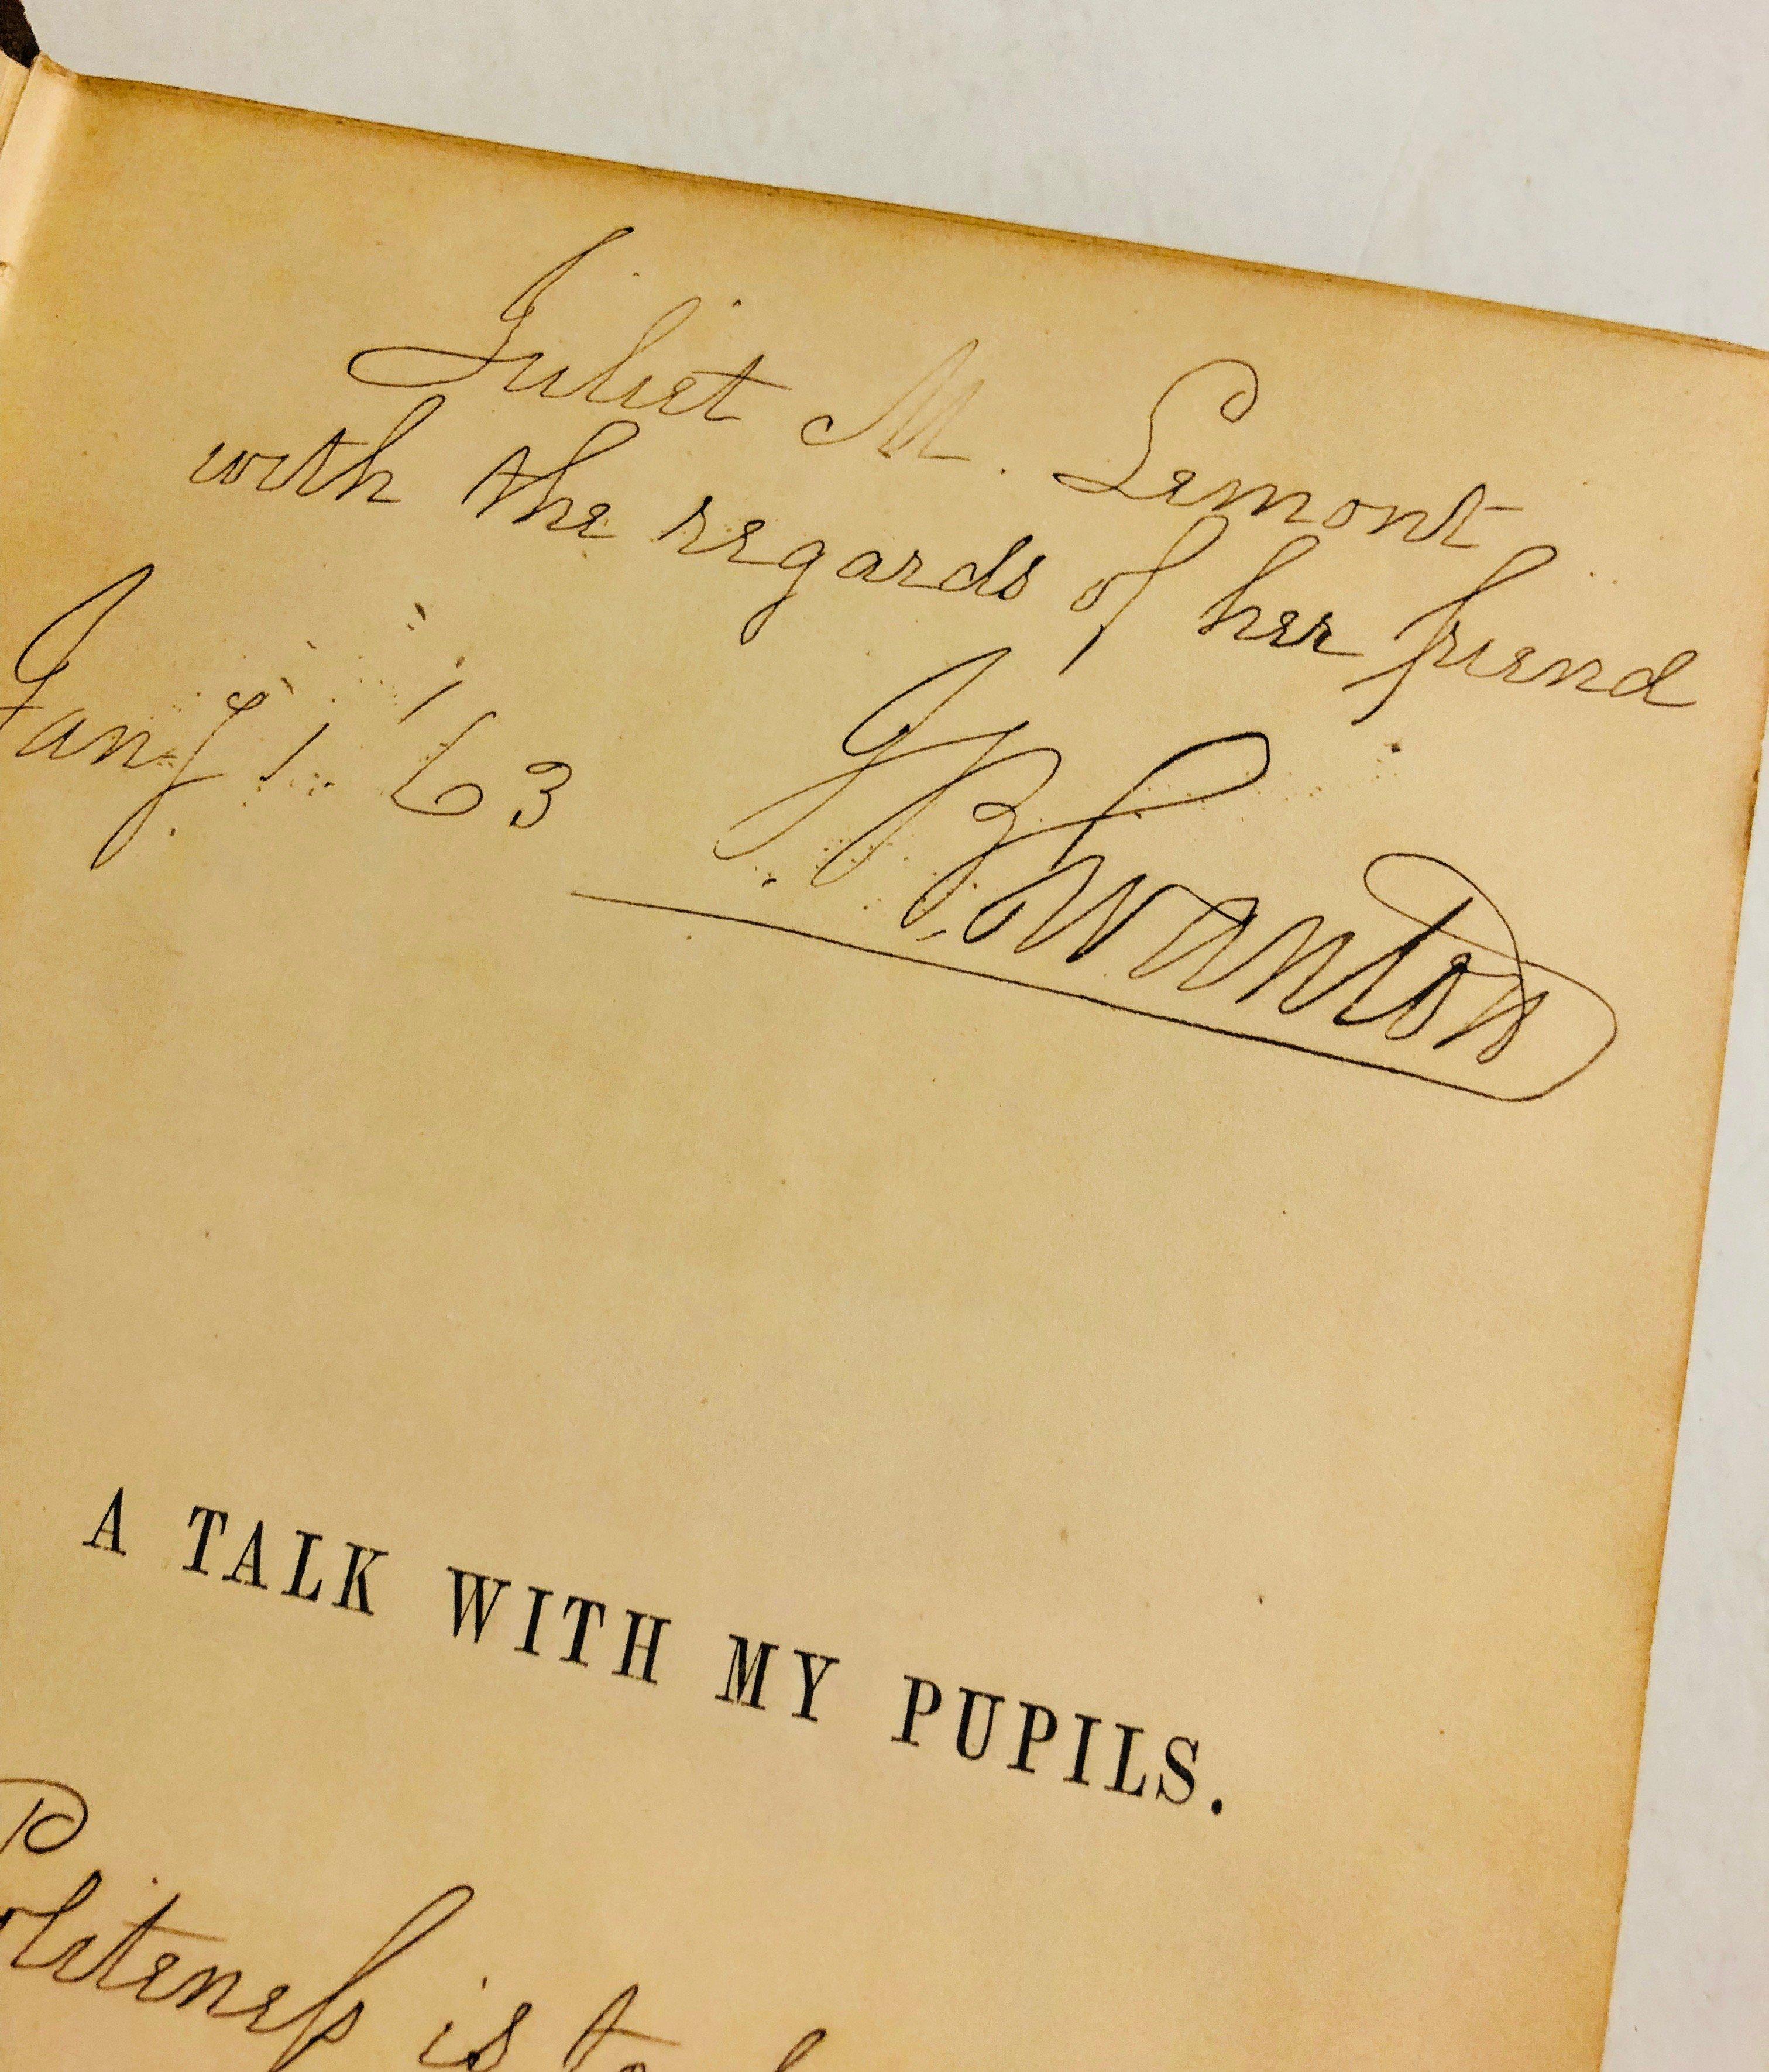 Juliet M. Lemont
with the regards of her friend
Jany 1. '63
J B Swanton
A TALK WITH MY PUPILS.
Politeness is to